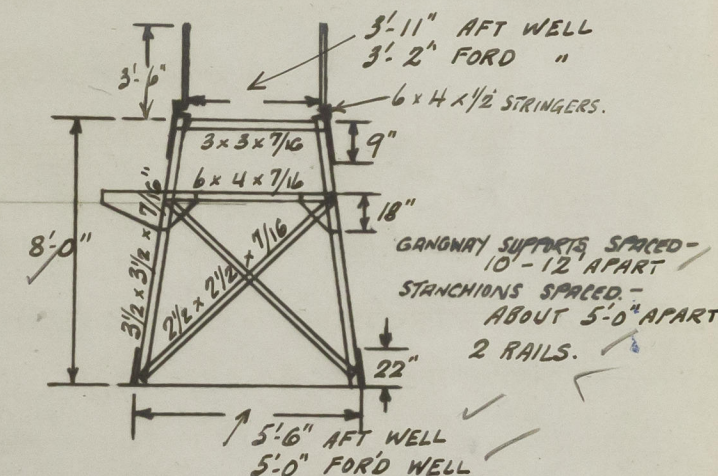 3'-11" AFT WELL
3'-2" FORD "
3'-6"
6 x 4 x 1/2 STRINGERS.
3 x 3 x 7/16
9"
6 x 4 x 7/16
18"
8'-0"
3 1/2 x 3 1/2 x 7/16"
2 1/2 x 2 1/2 x 7/16
GANGWAY SUPPORTS SPACED-
10'-12' APART
STANCHIONS SPACED.-
ABOUT 5'-0" APART
2 RAILS.
22"
5'-6" AFT WELL
5'-0" FOR'D WELL